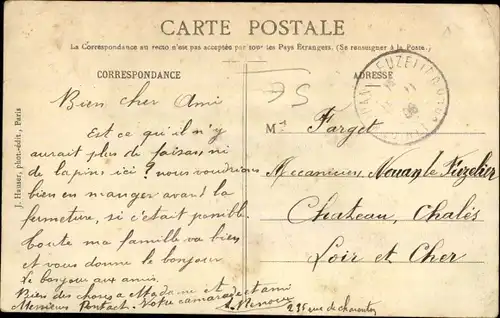 CARTE POSTALE
La Correspondance au recto n'est pas acceptée par tous les Pays Étrangers. (Se renseigner à la Poste.)
CORRESPONDANCE
ADRESSE
J. Hauser, phot.-édit., Paris
75
Bien cher Ami
Est ce qu'il n'y
aurait plus de faisan, ni
de lapins ici ? nous voudrions
bien en manger avant la
fermeture, si c'était possible.
Toute ma famille va bien
et vous donne le bonjour
le bonjour aux amis.
Bien des choses a Madame et
Messieurs Votre camarade et ami
235 rue de charenton
Mr Farget
Mecanicien, Nouan le Fuzelier
Chateau, Chalès
Loir et Cher